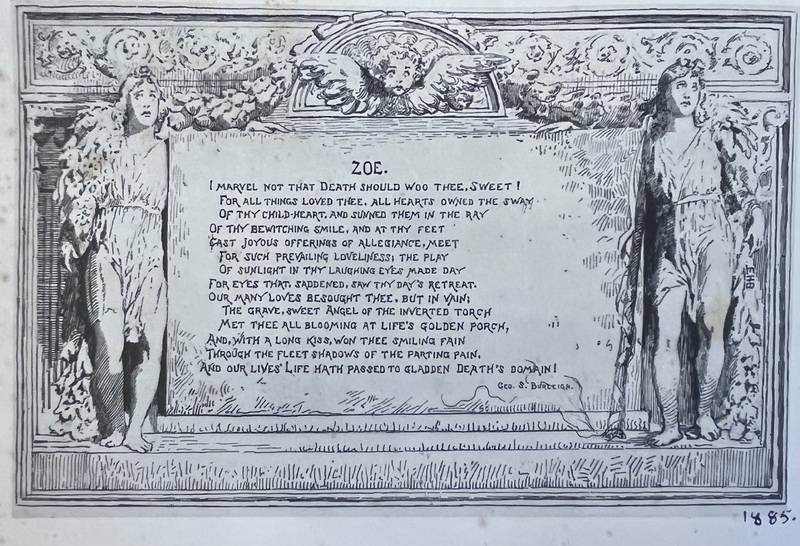 ZOE.
I MARVEL NOT THAT DEATH SHOULD WOO THEE, SWEET!
FOR ALL THINGS LOVED THEE, ALL HEARTS OWNED THE SWAY
OF THY CHILD-HEART, AND SUNNED THEM IN THE RAY
OF THY BEWITCHING SMILE, AND AT THY FEET
CAST JOYOUS OFFERINGS OF ALLEGIANCE, MEET
FOR SUCH PREVAILING LOVELINESS; THE PLAY
OF SUNLIGHT IN THY LAUGHING EYES MADE DAY
FOR EYES THAT, SADDENED, SAW THY DAY'S RETREAT.
OUR MANY LOVES BESOUGHT THEE, BUT IN VAIN;
THE GRAVE, SWEET ANGEL OF THE INVERTED TORCH
MET THEE ALL BLOOMING AT LIFE'S GOLDEN PORCH,
AND, WITH A LONG KISS, WON THEE SMILING FAIN
THROUGH THE FLEET SHADOWS OF THE PARTING PAIN,
AND OUR LIVES' LIFE HATH PASSED TO GLADDEN DEATH'S DOMAIN!
GEO. S. BURLEIGH.
EHB
1885.